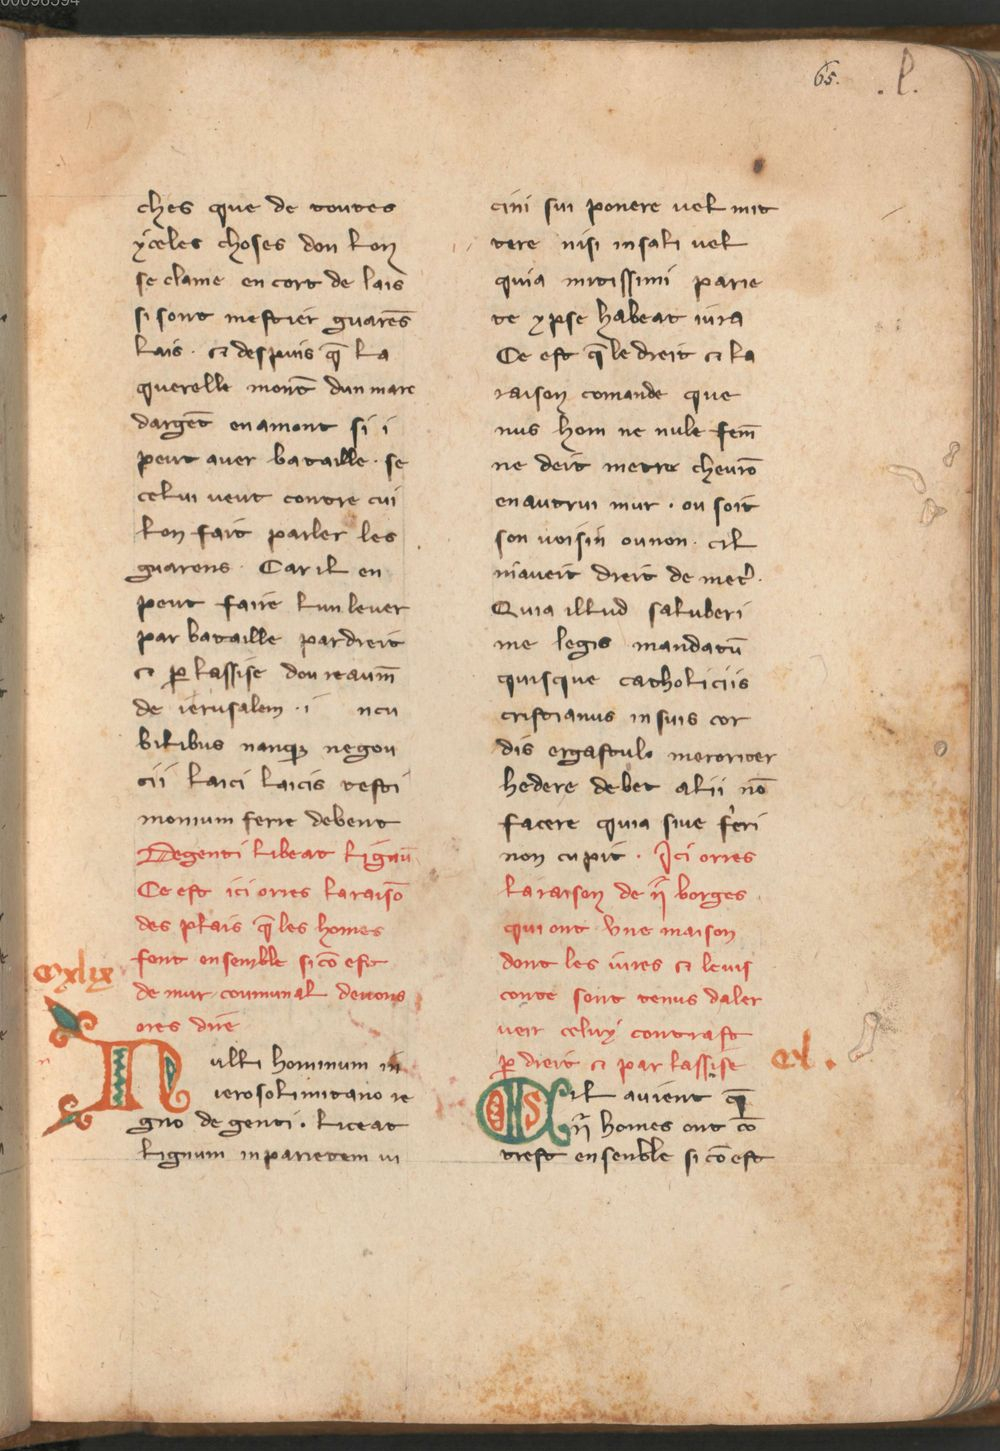 00096394
65.
.l.
ches que de toutes
ẏceles choses don lon
se clame en cort de lais
si sont mestier guarēs
lais · et despuis q̄ la
querelle mont̄ dun marc
dargēt en amont si i
peut aver bataille · se
celui veut contre cui
lon fait parler les
guarens · Car il en
peut faire lun lever
par bataille par dreit
et ꝑ lassise dou reaum̄
de ierusalem · i ncu
bilibus nanqꝫ negou
cii laici laicis testi
monium ferre debent
Degenti libeat lignū
Ce est ici orres la raisō
des plais q̄ les homes
font ensemble si cō est
de mur coumunal devons
ores dire
cxlix
Nulli hominum in
ierosolimitano re
gno degenti · liceat
lignum in parietem vi
cini sui ponere vel mit
tere nisi in sali vel
quia mitissimi parie
te ypse habeat iura
Ce est q̄ le dreit et la
raison comande que
nus hom ne nule fem̄
ne deit metre chevrō
en autrui mur · ou soit
son voisin ou non · cil
ni aveit dreit de met᷑ ·
Quia illud saluberi
me legis mandatū
quisque catholiciis
cristianus in suis cor
dis ergastulo memoriter
hedere debet alii nō
facere quia sive f̓eri
non cupit · Ici orres
la raison de ij̄ borges
qui ont vne maison
dont les iures et levis
conte sont tenus daler
veir celuẏ contrast
ꝑ dreit et par lassise
cl .
Sil avient q̄
ij̄ homes ont cō
trest ensenble si cō est